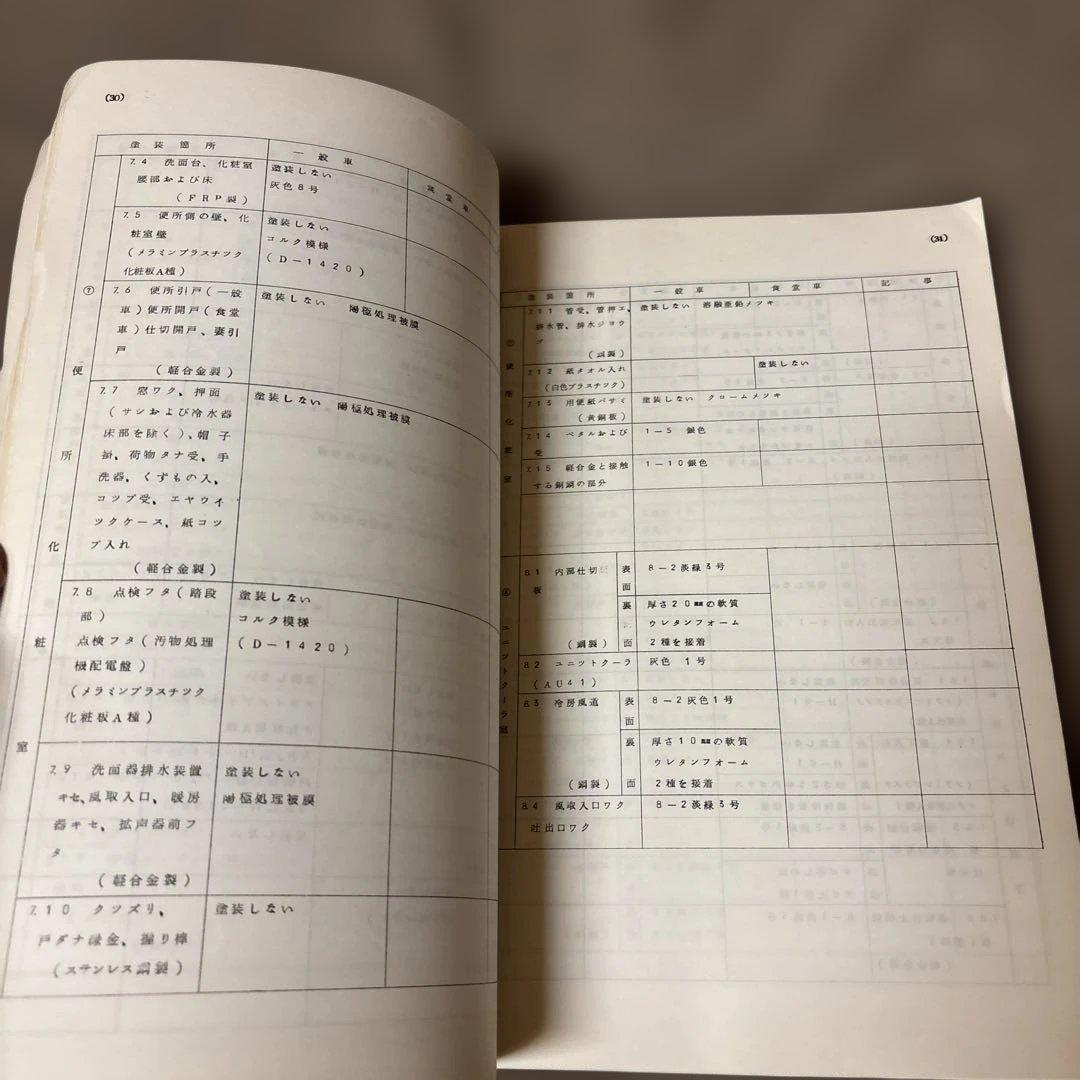 (30)
塗装箇所 一般車 食堂車
7.4 洗面台、化粧室 塗装しない
腰部および床 灰色8号
(FRP製)
7.5 便所側の壁、化 塗装しない
粧室壁 コルク模様
(メラミンプラスチツク (D-1420)
化粧板A種)
⑦ 便所化粧室
7.6 便所引戸(一般 塗装しない 陽極処理被膜
車)便所開戸(食堂
車)仕切開戸、妻引
戸
(軽合金製)
7.7 窓ワク、押面 塗装しない 陽極処理被膜
(サシおよび冷水器
床部を除く)、帽子
掛、荷物タナ受、手
洗器、くずもの入、
コツプ受、エヤウイ
ツクケース、紙コツ
プ入れ
(軽合金製)
7.8 点検フタ(踏段 塗装しない
部) コルク模様
点検フタ(汚物処理 (D-1420)
機配電盤)
(メラミンプラスチツク
化粧板A種)
7.9 洗面器排水装置 塗装しない
キセ、風取入口、暖房 陽極処理被膜
器キセ、拡声器前フ
タ
(軽合金製)
7.10 クツズリ、 塗装しない
戸ダナ縁金、握り棒
(ステンレス鋼製)
(31)
塗装箇所 一般車 食堂車 記事
⑦ 便所化粧室
7.11 管受、管押エ、 塗装しない 溶融亜鉛メツキ
排水管、排水ジヨウ
ゴ
(鋼製)
7.12 紙タオル入れ 塗装しない
(白色プラスチツク)
7.13 用便紙バサミ 塗装しない クロームメツキ
(黄銅板)
7.14 ペタルおよび 1-5 銀色
受
7.15 軽合金と接触 1-10銀色
する銅鋼の部分
⑧ ユニツトクーラ室
8.1 内部仕切 表 8-2淡緑3号
板 面
裏 厚さ20㎜の軟質
ウレタンフォーム
(鋼製) 面 2種を接着
8.2 ユニツトクーラ 灰色 1号
(AU41)
8.3 冷房風道 表 8-2灰色1号
面
裏 厚さ10㎜の軟質
ウレタンフォーム
(鋼製) 面 2種を接着
8.4 風取入口ワク 8-2淡緑3号
吐出口ワク